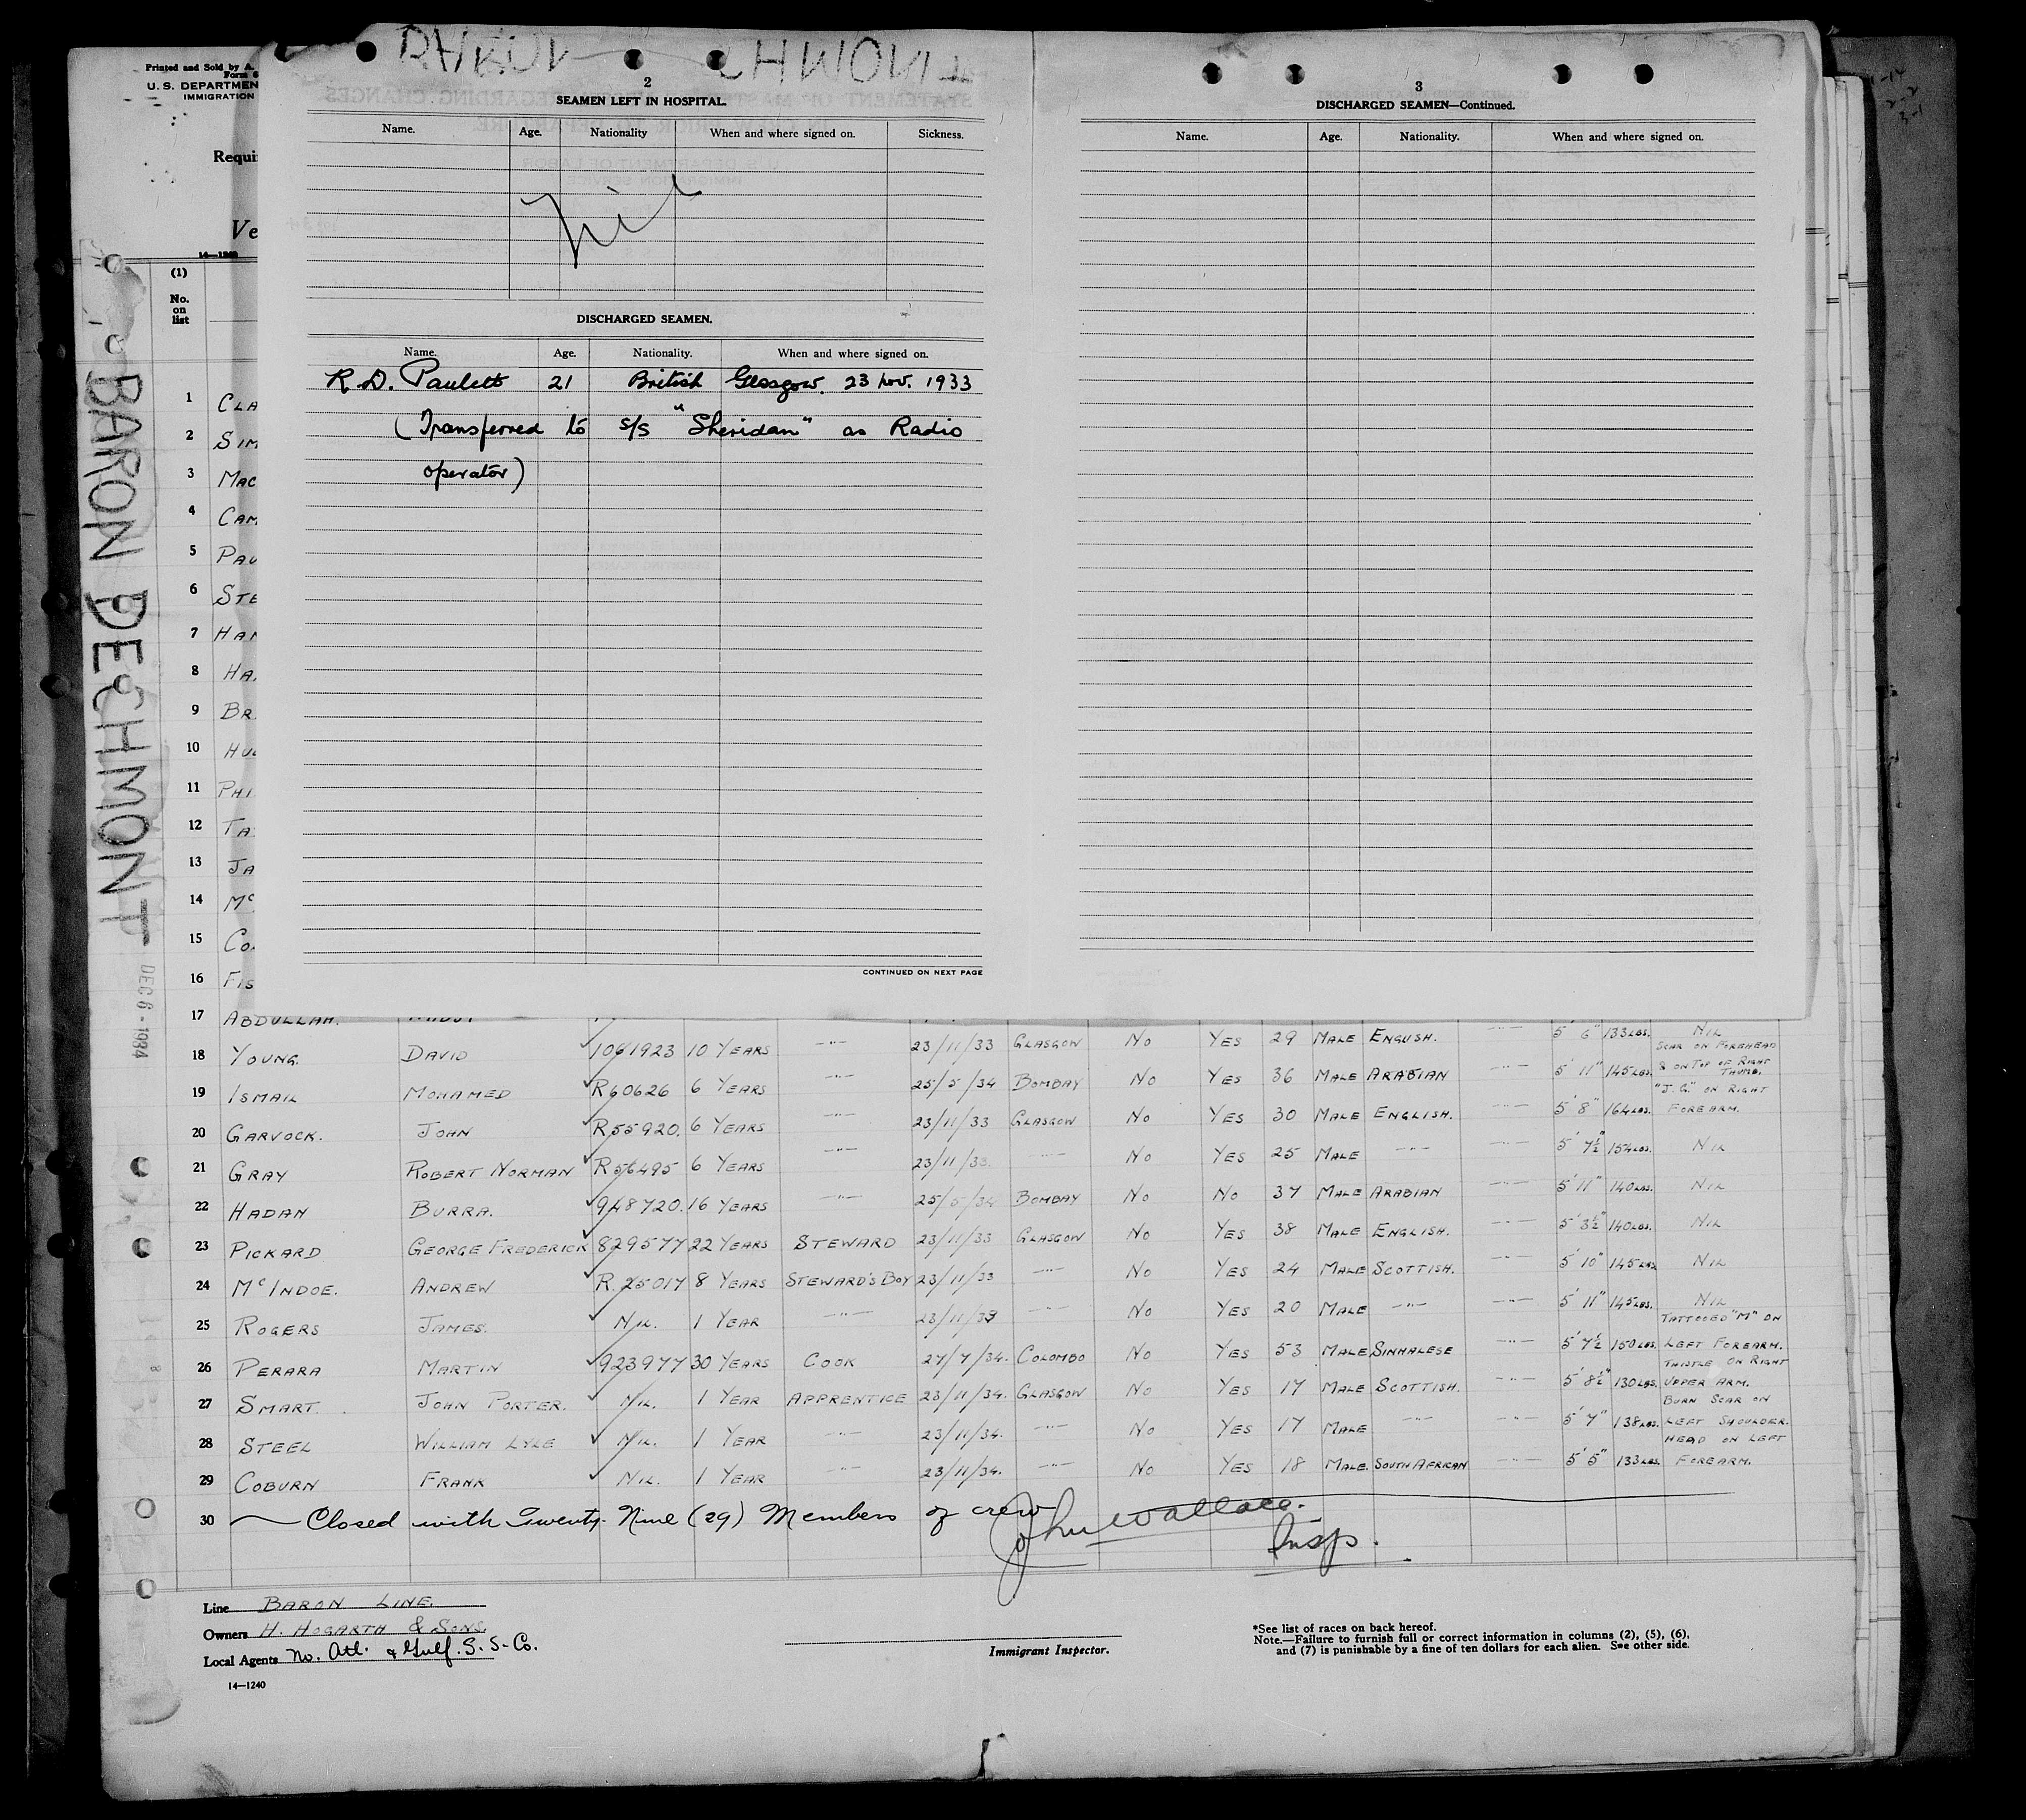 Printed and Sold by A.
Form 6
U. S. DEPARTMEN
IMMIGRATION
Requi
Ve
14—1240
(1)
No.
on
list
BARON DECHMONT
DEC 6 - 1934
2
SEAMEN LEFT IN HOSPITAL.
Name. Age. Nationality When and where signed on. Sickness.
Nil
DISCHARGED SEAMEN.
Name. Age. Nationality. When and where signed on.
R. D. Paulett 21 British Glasgow. 23 Nov. 1933
(Transferred to s/s "Sheridan" as Radio
operator)
CONTINUED ON NEXT PAGE
3
DISCHARGED SEAMEN—Continued.
Name. Age. Nationality. When and where signed on.
1 CLA
2 SIM
3 MAC
4 CAM
5 PAU
6 STE
7 HAM
8 HA
9 BR
10 HU
11 PHI
12 TA
13 JA
14 Mc
15 CO
16 FIS
17 ABDULLAH. 5' 6" 133 LBS. NIL
18 YOUNG. DAVID 1061923 10 YEARS —"— 23/11/33 GLASGOW NO YES 29 MALE ENGLISH. —"— 5' 11" 145 LBS. SCAR ON FOREHEAD & ON TOP OF RIGHT THUMB.
19 ISMAIL MOHAMED R60626 6 YEARS —"— 25/5/34 BOMBAY NO YES 36 MALE ARABIAN —"— 5' 8" 164 LBS. "J.G." ON RIGHT FOREARM.
20 GARVOCK. JOHN R55920. 6 YEARS —"— 23/11/33 GLASGOW NO YES 30 MALE ENGLISH. —"— 5' 7½" 154 LBS. NIL
21 GRAY ROBERT NORMAN R56495 6 YEARS —"— 23/11/33. —"— NO YES 25 MALE —"— 5' 11" 140 LBS. NIL
22 HADAN BURRA. 948720. 16 YEARS —"— 25/5/34 BOMBAY NO NO 37 MALE ARABIAN —"— 5' 3½" 140 LBS. NIL
23 PICKARD GEORGE FREDERICK 829577 22 YEARS STEWARD 23/11/33 GLASGOW NO YES 38 MALE ENGLISH. —"— 5' 10" 145 LBS. NIL
24 McINDOE. ANDREW R.25017 8 YEARS STEWARD'S BOY 23/11/33 —"— NO YES 24 MALE SCOTTISH. —"— 5' 11" 145 LBS. NIL
25 ROGERS JAMES. NIL. 1 YEAR —"— 23/11/33 —"— NO YES 20 MALE —"— —"— 5' 7½ 150 LBS. TATTOOED "M" ON LEFT FOREARM.
26 PERARA MARTIN 923977 30 YEARS COOK 27/7/34. COLOMBO NO YES 53 MALE SINHALESE —"— 5' 8½" 130 LBS. THISTLE ON RIGHT UPPER ARM.
27 SMART. JOHN PORTER. NIL. 1 YEAR APPRENTICE 23/11/34. GLASGOW NO YES 17 MALE SCOTTISH. —"— 5' 7" 138 LBS. BURN SCAR ON LEFT SHOULDER.
28 STEEL WILLIAM LYLE NIL. 1 YEAR —"— 23/11/34. —"— NO YES 17 MALE —"— —"— 5' 5" 133 LBS. HEAD ON LEFT FOREARM.
29 COBURN FRANK NIL. 1 YEAR —"— 23/11/34. —"— NO YES 18 MALE. SOUTH AFRICAN
30 Closed with Twenty-Nine (29) Members of crew John Wallace.
Insp.
Line BARON LINE.
Owners H. HOGARTH & SONS.
Local Agents No. Atl. & Gulf. S. S. Co.
14—1240
Immigrant Inspector.
*See list of races on back hereof.
Note.—Failure to furnish full or correct information in columns (2), (5), (6),
and (7) is punishable by a fine of ten dollars for each alien. See other side.